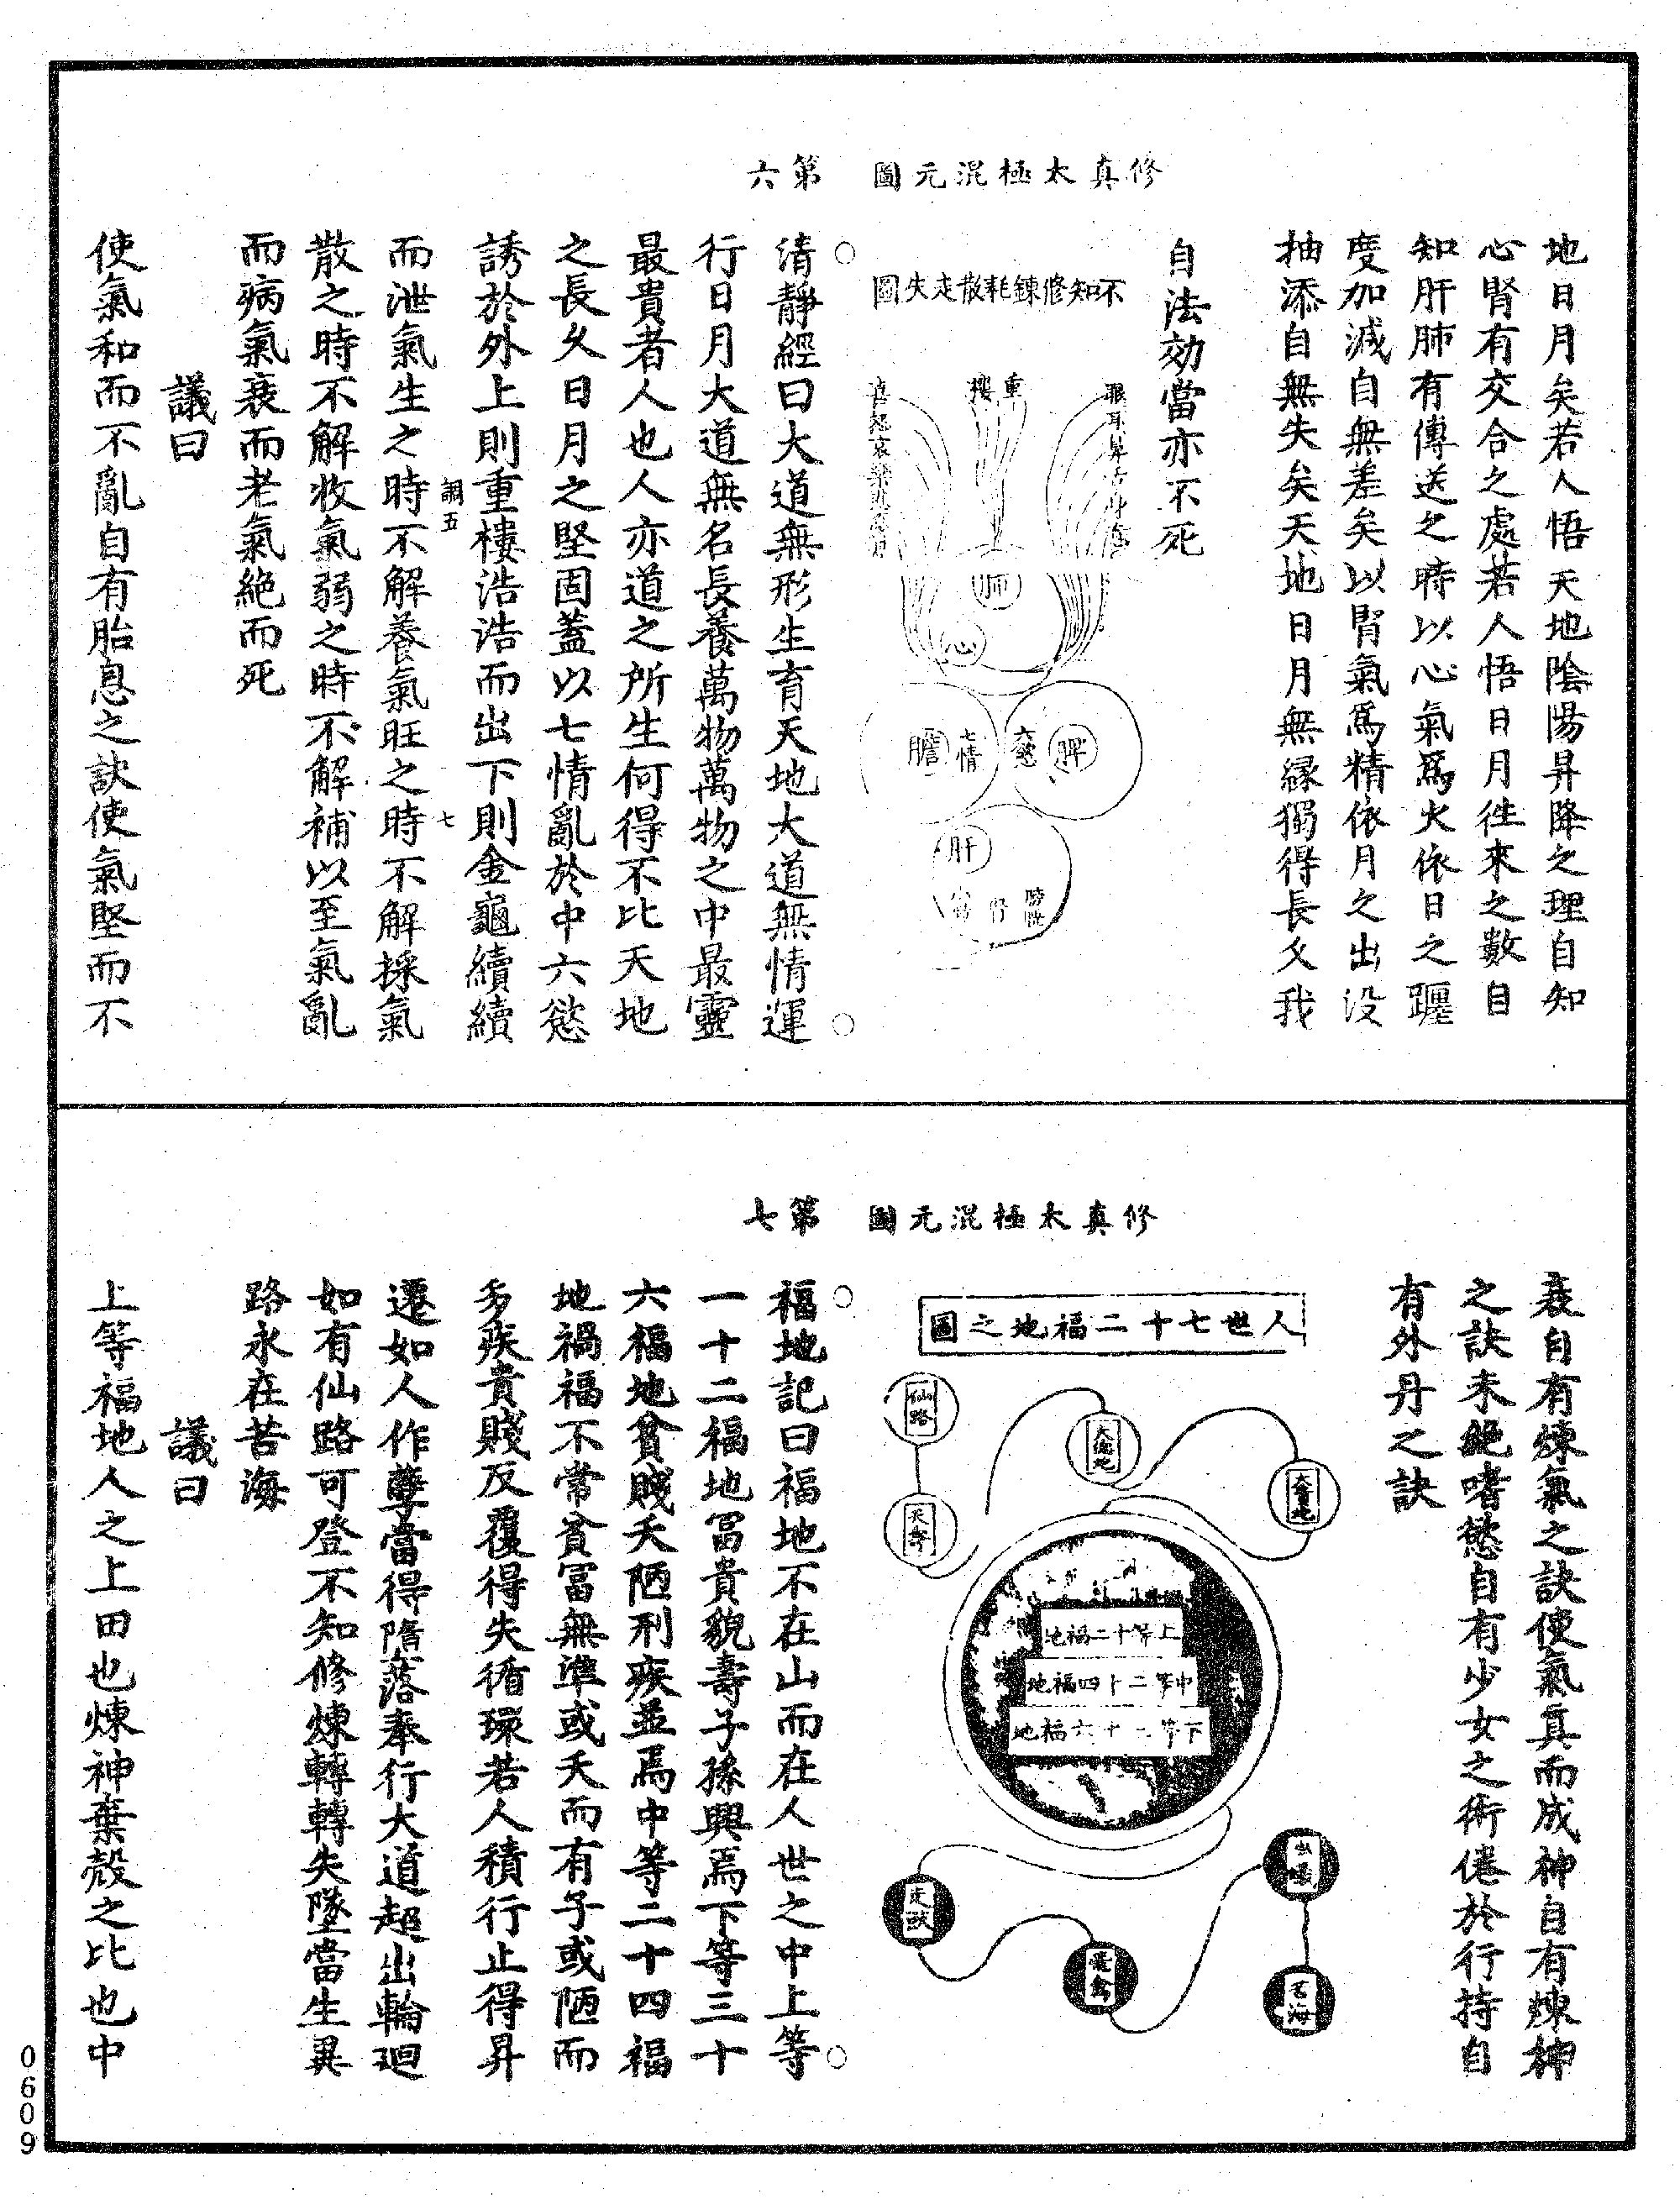 地日月矣若人悟天地陰陽昇降之理自知
心腎有交合之處若人悟日月徃來之數自
知肝肺有傳送之時以心氣爲火依日之躔
度加減自無差矣以腎氣爲精依月之出没
抽添自無失矣天地日月無緣獨得長久我
自法効當亦不死
修真太極混元圖　第六
不知修鍊耗散走失圖
重樓
肺
心
脾
六慾
七情
膽
肝
腎
膀胱
清靜經曰大道無形生育天地大道無情運
行日月大道無名長養萬物萬物之中最靈
最貴者人也人亦道之所生何得不比天地
之長久日月之堅固蓋以七情亂於中六慾
誘於外上則重樓浩浩而出下則金龜續續
五　七
而泄氣生之時不解養氣旺之時不解採氣
散之時不解收氣弱之時不解補以至氣亂
而病氣衰而老氣絶而死
議曰
使氣和而不亂自有胎息之訣使氣堅而不
衰自有煉氣之訣使氣真而成神自有煉神
之訣未絶嗜慾自有少女之術倦於行持自
有外丹之訣
修真太極混元圖　第七
人世七十二福地之圖
仙路
天壽
大富地
上等十二福地
中等二十四福地
下等三十六福地
走獸
苦海
福地記曰福地不在山而在人世之中上等
一十二福地冨貴貌壽子孫興焉下等三十
六福地貧賤夭陋刑疾並焉中等二十四福
地禍福不常貧冨無準或夭而有子或陋而
多疾貴賤反覆得失循環若人積行止得昇
遷如人作孽當得隋落奉行大道超出輪廻
如有仙路可登不知修煉轉轉失墜當生異
路永在苦海
議曰
上等福地人之上田也煉神棄殼之比也中
0609